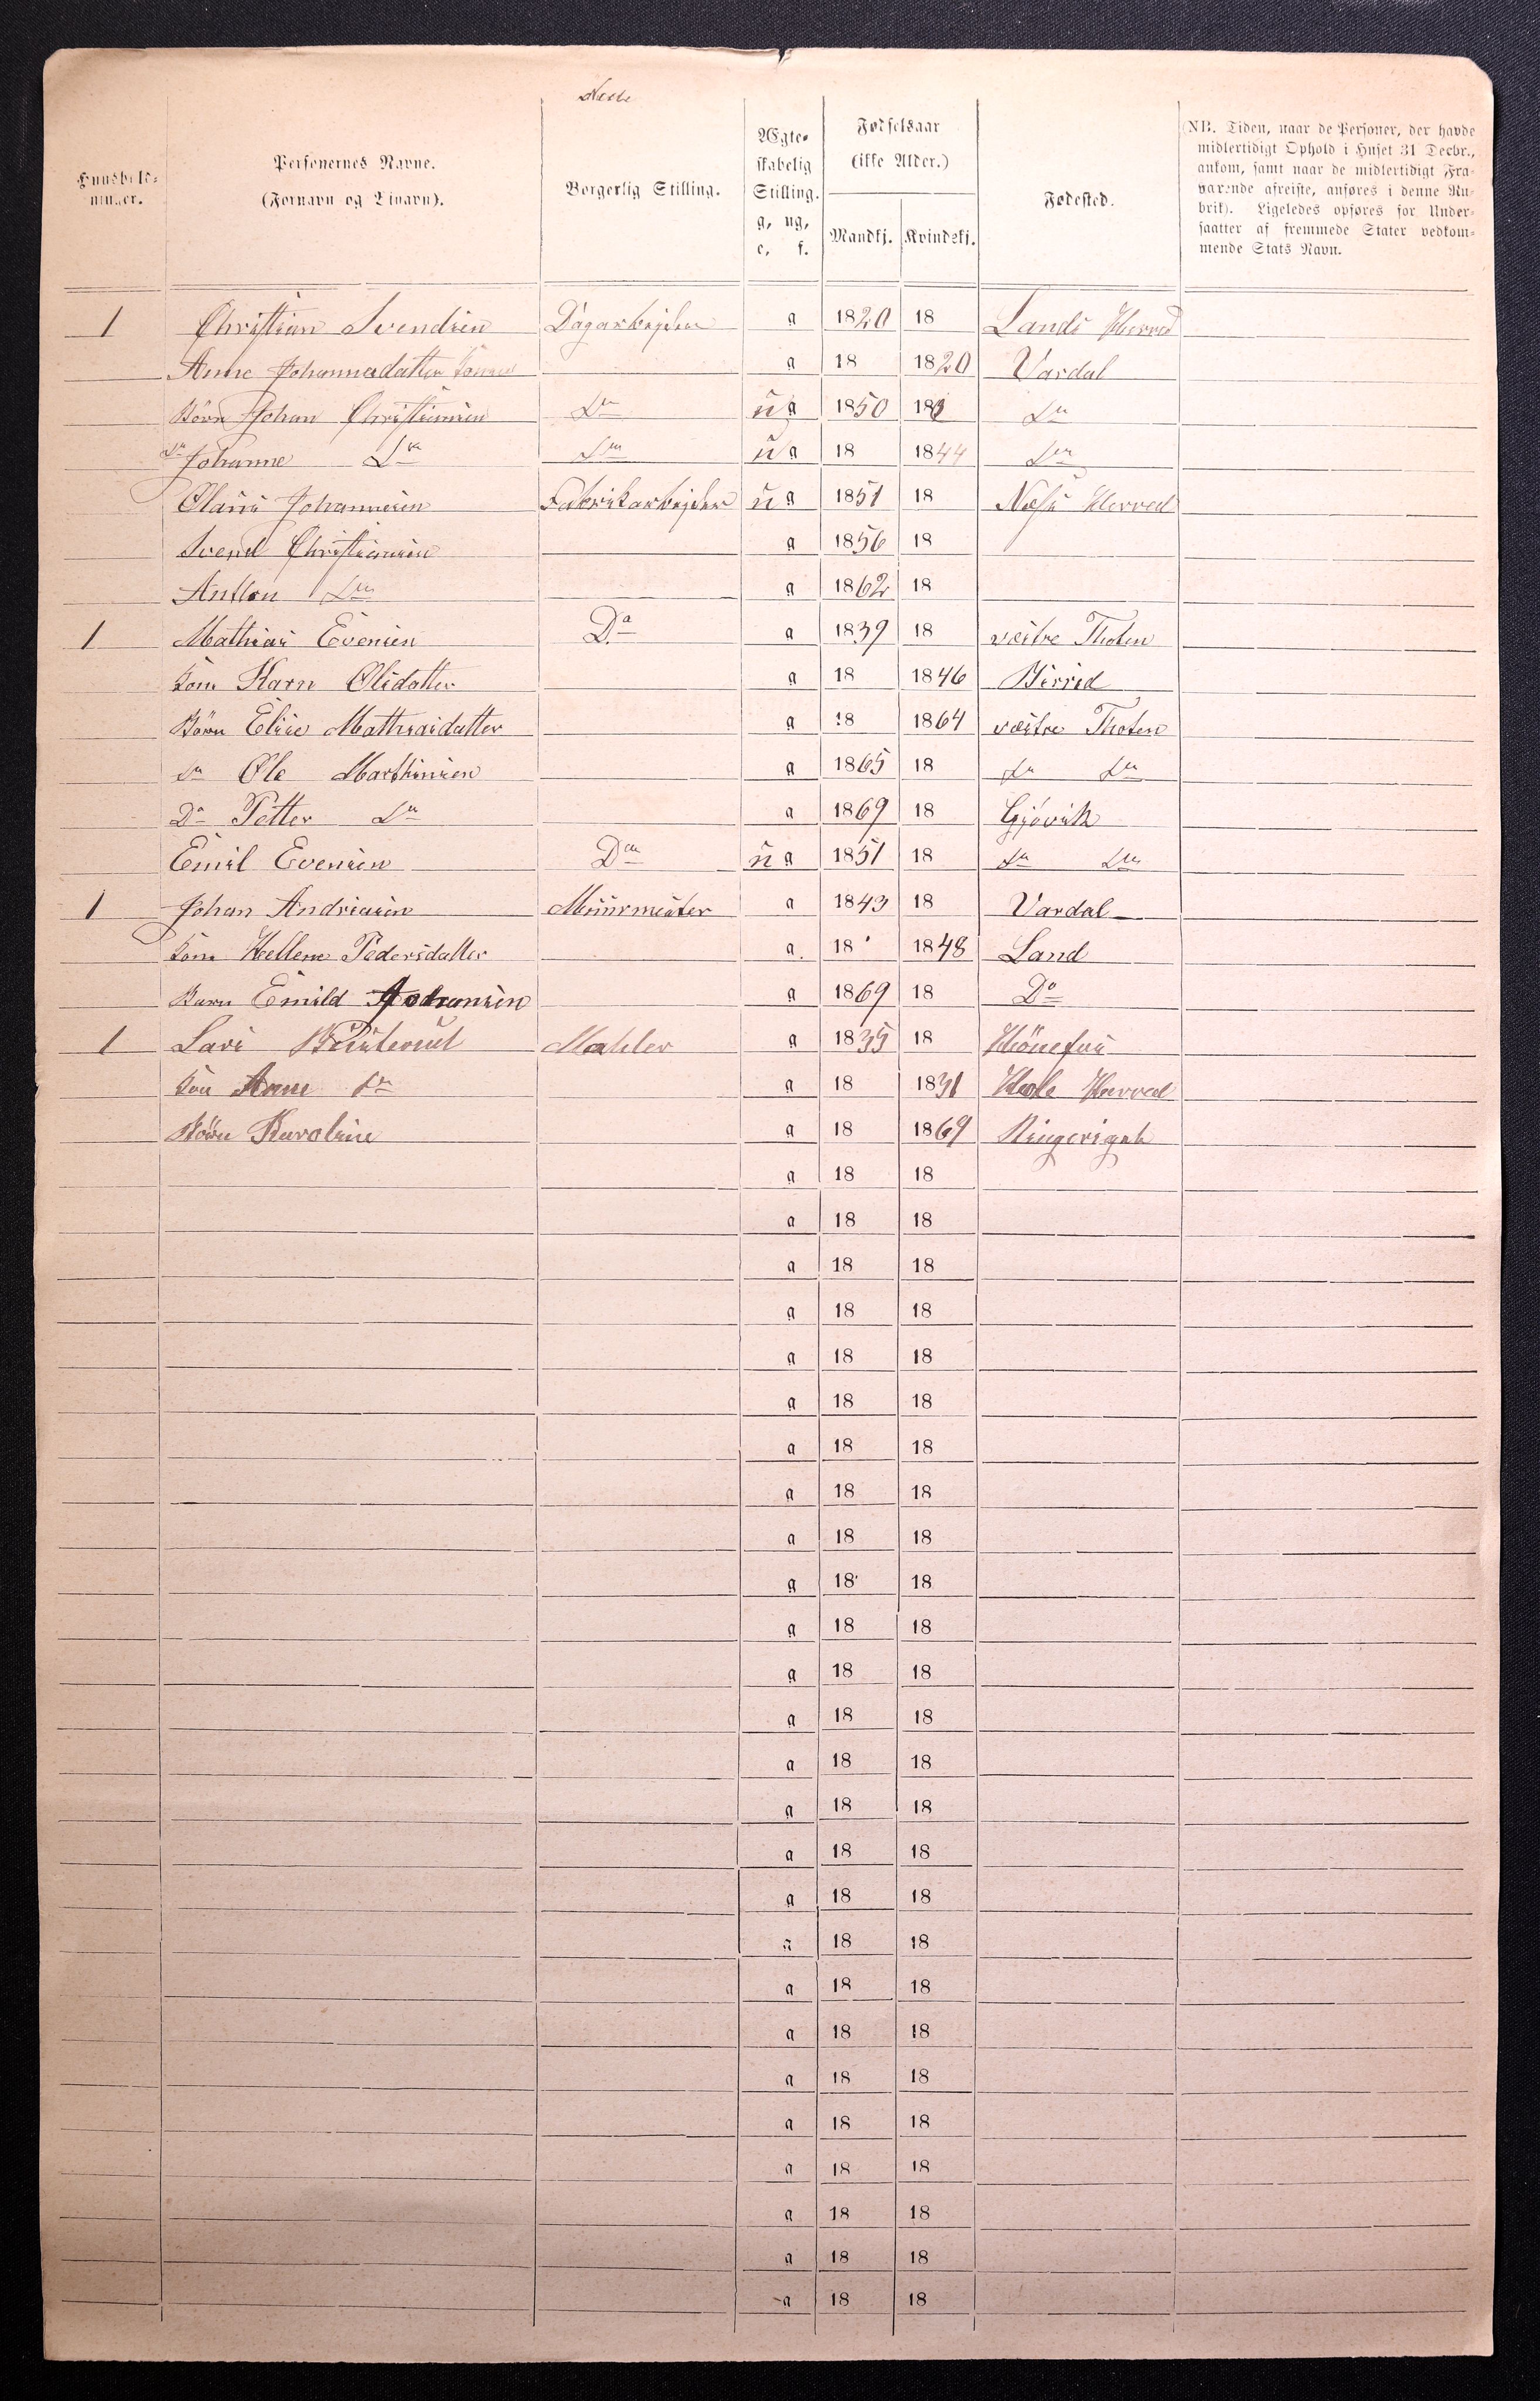 Huusholdnummer.
Personernes Navne. (Fornavn og Tilnavn).
Borgerlig Stilling.
Ægteskabelig Stilling. g, ug, e, f.
Fødselsaar (ikke Alder.)
Mandkj. Kvindekj.
Fødested.
(NB. Tiden, naar de Personer, der havde
midlertidigt Ophold i Huset 31 Decbr.,
ankom, samt naar de midlertidigt Fra-
værende afreiste, anføres i denne Ru-
brik). Ligeledes opføres for Under-
saatter af fremmede Stater vedkom-
mende Stats Navn.
1 Christian Svendsen Dagarbejder g 1820 18 Lands Herred
Anne Johannesdatter g 18 1820 Vardal
Børn Johan Christiansen Do ug 1850 18 Do
Do Johanne Do Do ug 18 1844 Do
Olaus Johannesen Fabrikarbejder ug 1851 18 Næss Herred
Svend Christiansen g 1856 18
Antton Do g 1862 18
1 Mathias Evensen Do g 1839 18 vestre Thoten
Kone Karn Olsdatter g 18 1846 Birrid
Børn Elise Mathiasdatter g 18 1864 vestre Thoten
Do Ole Marthinsen g 1865 18 Do Do
Do Petter Do g 1869 18 Gjövik
Emil Evensen Do ug 1851 18 Do Do
1 Johan Andriasen Muurmester g 1843 18 Vardal
Kone Hellene Pedersdatter g 18 1848 Land
Barn Emild Johansen g 1869 18 Do
1 Lars Mahler g 1835 18 Hönefos
Kone Anne Do g 18 1831 Hole Herred
Börn Karoline g 18 1869 Ringerigeh
g 18 18
g 18 18
g 18 18
g 18 18
g 18 18
g 18 18
g 18 18
g 18 18
g 18 18
g 18 18
g 18 18
g 18 18
g 18 18
g 18 18
g 18 18
g 18 18
g 18 18
g 18 18
g 18 18
g 18 18
g 18 18
g 18 18
g 18 18
g 18 18
g 18 18
g 18 18